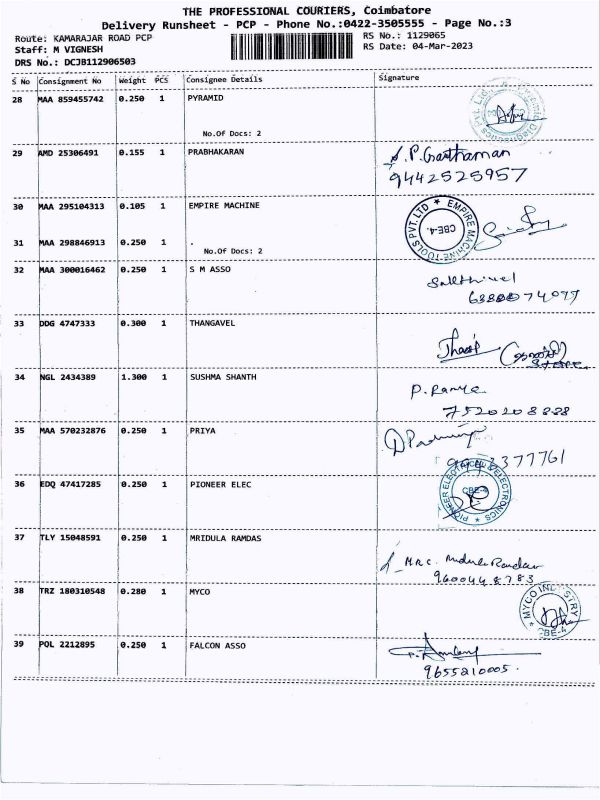 THE PROFESSIONAL COURIERS, Coimbatore
Delivery Runsheet - PCP - Phone No.:0422-3505555 - Page No.:3
Route: KAMARAJAR ROAD PCP RS No.: 1129065
Staff: M VIGNESH RS Date: 04-Mar-2023
DRS No.: DCJB112906503
S No Consignment No Weight PCS Consignee Details Signature
28 MAA 859455742 0.250 1 PYRAMID
No.Of Docs: 2
29 AMD 25306491 0.155 1 PRABHAKARAN
S.P. Gowthaman
9442525957
30 MAA 295104313 0.105 1 EMPIRE MACHINE
EMPIRE MACHINE TOOLS PVT. LTD ★ CBE-4.
31 MAA 298846913 0.250 1 .
No.Of Docs: 2
32 MAA 300016462 0.250 1 S M ASSO
Sakthivel
33 DDG 4747333 0.300 1 THANGAVEL
34 NGL 2434389 1.300 1 SUSHMA SHANTH
P. Ramya
35 MAA 570232876 0.250 1 PRIYA
377761
36 EDQ 47417285 0.250 1 PIONEER ELEC
PIONEER ELECTRICAL & ELECTRONICS ★ CBE-4
37 TLY 15048591 0.250 1 MRIDULA RAMDAS
9600448783
38 TRZ 180310548 0.280 1 MYCO
MYCO INDUSTRY ★ CBE-4
39 POL 2212895 0.250 1 FALCON ASSO
9655210005.